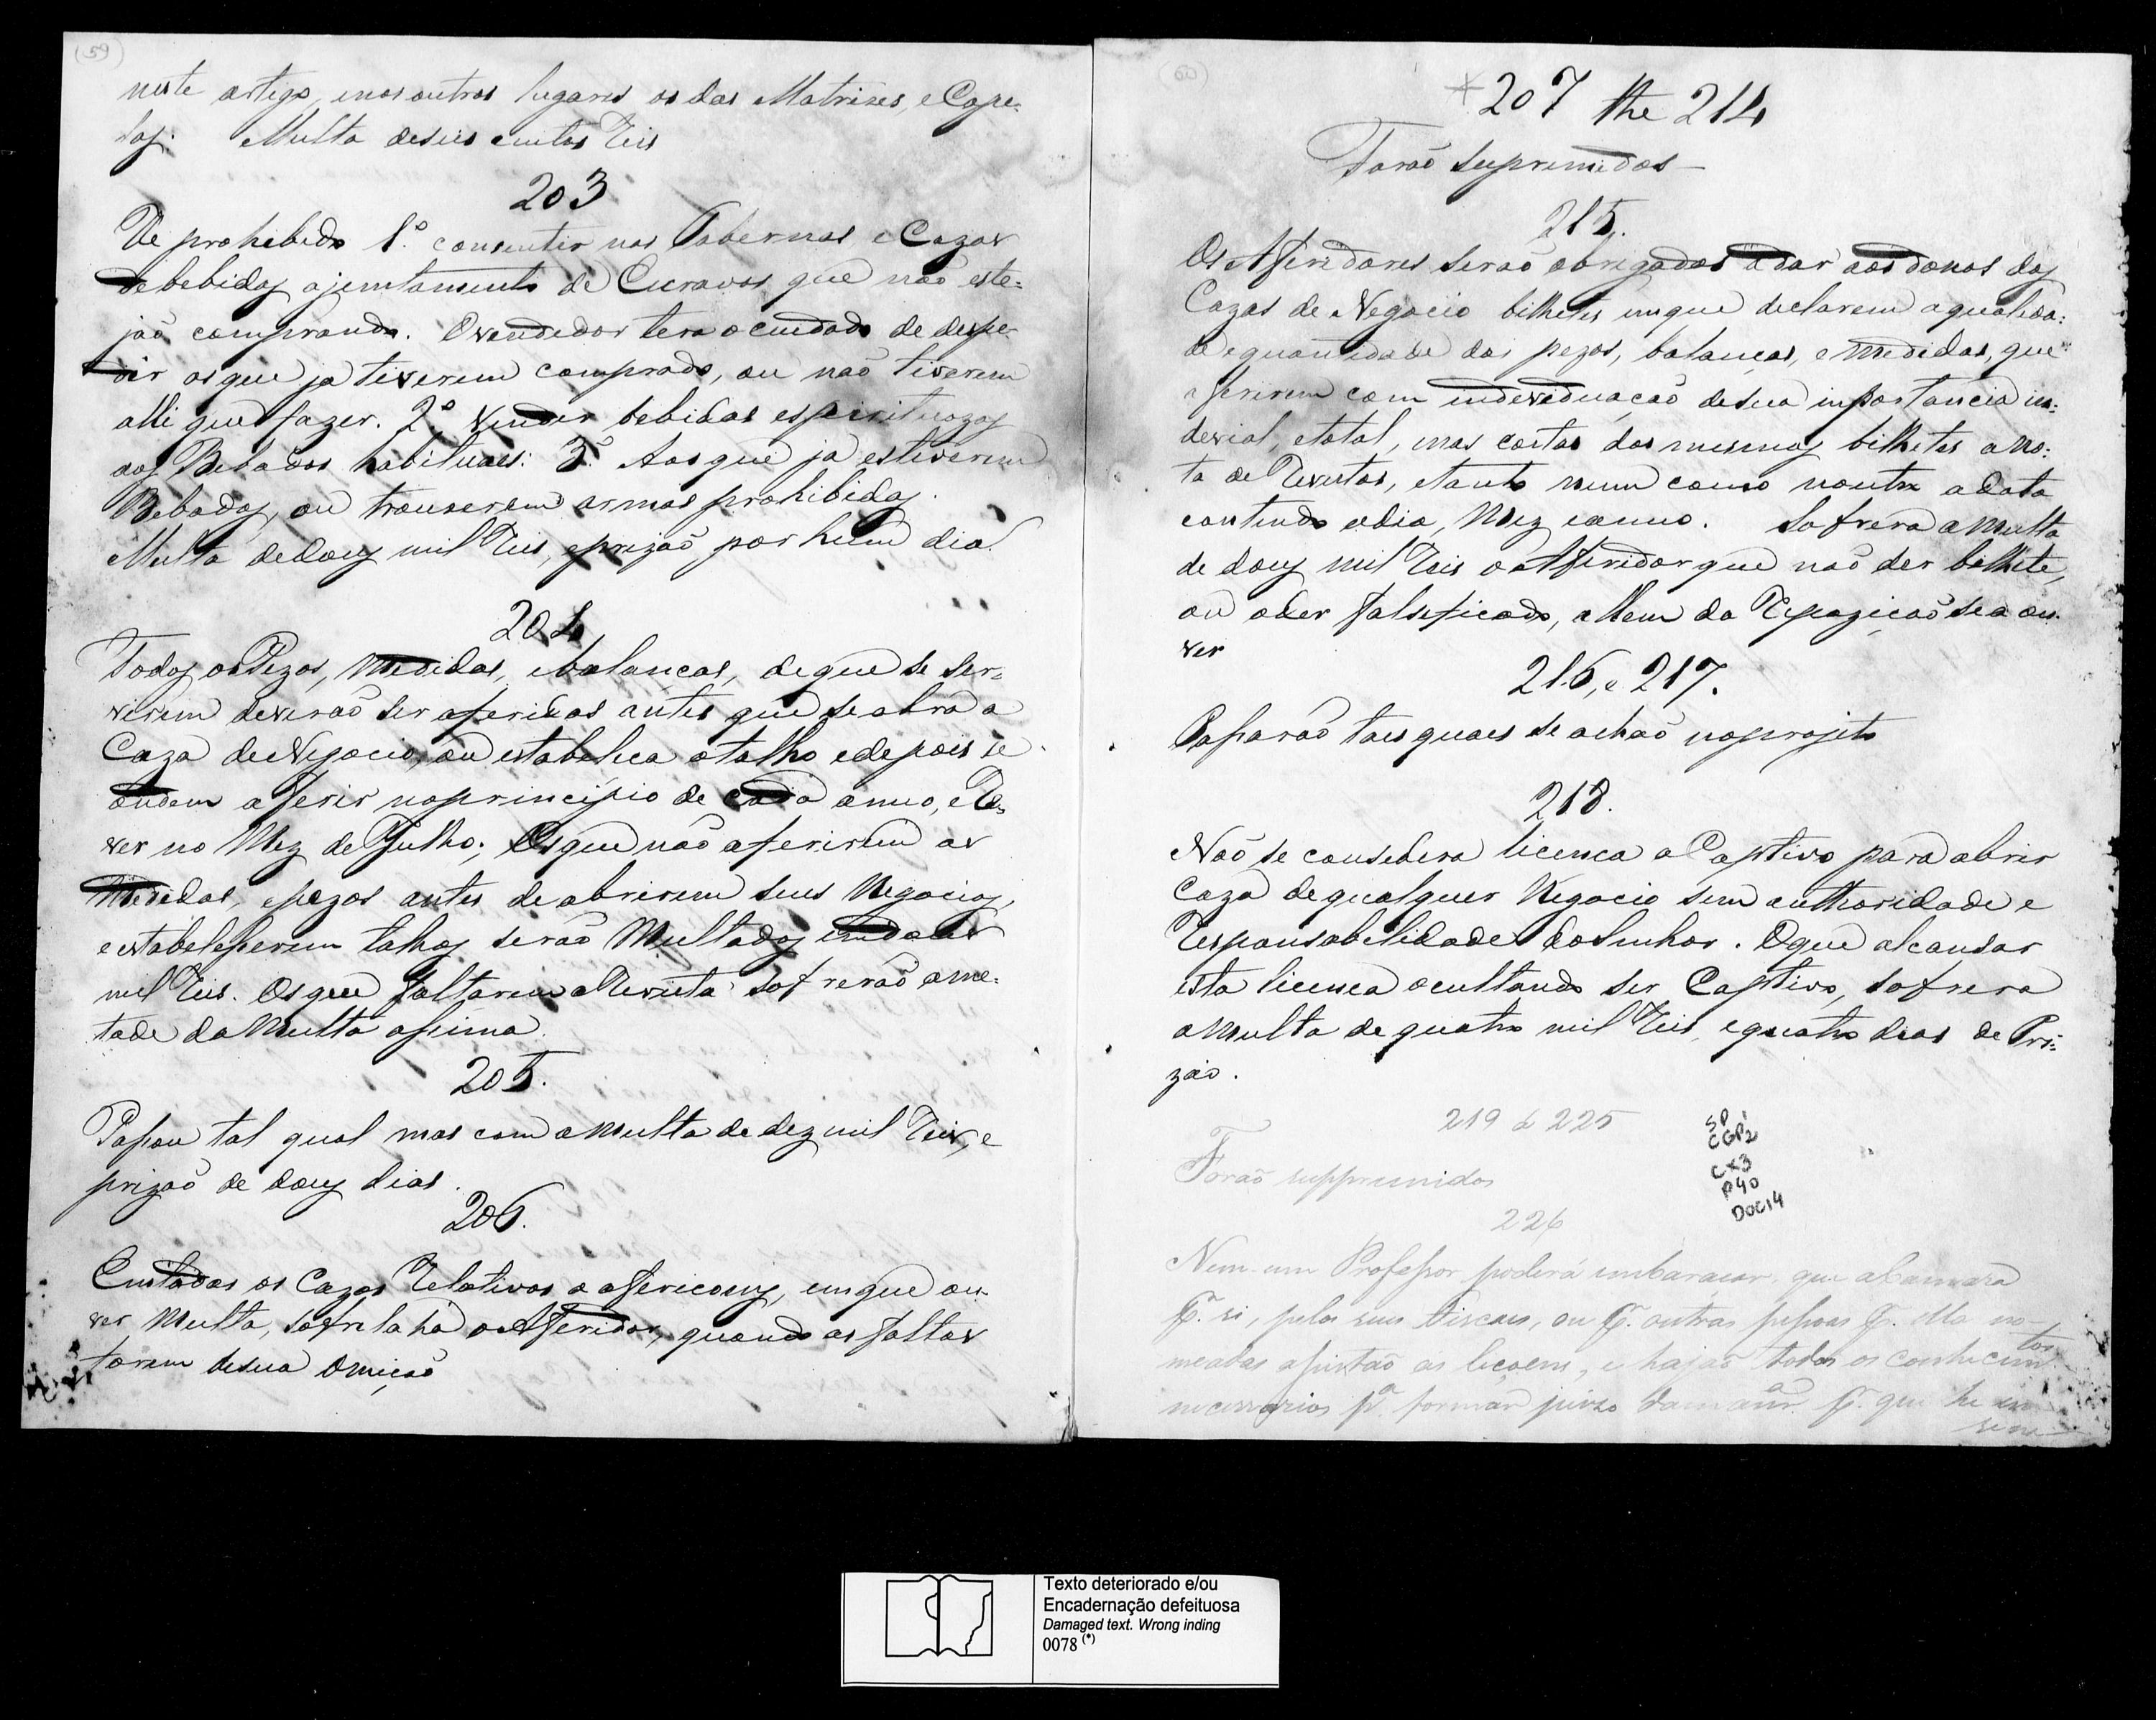 (59)
neste artigo, enos outros lugares os das Matrizes, e Cape-
las: Multa deseis centos Reis
203
He prohebido 1.º consentir nas Tabernas e Cazas
debebidas ajuntamento de Escravos que não este=
jaõ comprando. Ovendedor tera o cuidado de despe-
dir osque ja tiverem comprado, ou naõ tiverem
alli que fazer. 2º vender bebidas espirituozas
aos Bebados habituaes: 3.º Aosque ja estiverem
Bebados, ou trouxerem armas prohibidas.
Multa de dous mil Reis, eprizaõ por hum dia.
204
Todos os Pezos, Medidas, ebalanças, deque se ser=
virem deveraõ ser aferidas antes que se abra a
Caza de Negocio, ou estabeleca otalho edepois se
mandem aferir noprincipio de cada anno, e Re-
ver no Mez de Julho; Osque naõ aferirem as
Medidas, epezos antes deabrirem seus Negocios,
e estabelesserem talhos seraõ Multados em dous
mil Reis. Osque faltarem a Revista sofreraõ ame-
tade da Multa assima.
205.
Passou tal qual mas com amulta de dez mil Reis, e
prizaõ de dous dias.
206.
Em todos os Cazos Relativos a afericoins, emque ou-
ver Multa, sofrelaha o Aferidor, quando as faltas
forem desua Omiçaõ
(60)
207 the 214
Foraõ Suprimidos —
215.
Os Aferidores seraõ obrigados adar aos donos das
Cazas de Negocio bilhetes emque declarem aqualida:
de equantidade dos pezos, balancas, e medidas, que
aferirem com individuaçaõ desua importancia in:
devial, etotal, nas costas dos mesmos bilhetes a no:
ta de Revistas, etanto num como noutro a data
contendo odia, Mez eanno. Sofrera a multa
de dous mil Reis o Aferidor que naõ der bilhete,
ou oder falsificado, alem da Repoziçaõ se a ou-
ver
216, e 217.
Passaraõ taes quaes se achaõ noprojeto
218.
Naõ se consedera licenca a Captivo para abrir
Caza dequalquer Negocio sem authoridade e
Responsabelidade doSenhor. Oque alcansar
esta licenca ocultando ser Captivo, sofrera
amulta de quatro mil Reis, equatro dias de Pri=
zaõ.
219 a 225
Foraõ supprimidos
226
Nem-um Professor poderá embaraçar, que a Camara
p.r si, pelos seus Fiscaes, ou p.r outras pessoas p.r ella no-
meadas assistaõ as liçoens, e hajaõ todos os conhecim.tos
necessarios p.a formar juizo da man.ra p.r que he
SP
CGP2
CX3
P40
DOC14
Texto deteriorado e/ou
Encadernação defeituosa
Damaged text. Wrong inding
0078 (*)